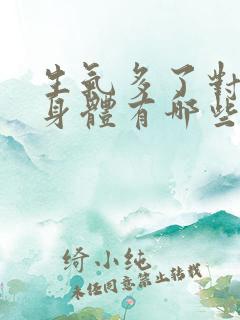 生氣多了對
身體有哪些
綺小純
未经同意禁止转载